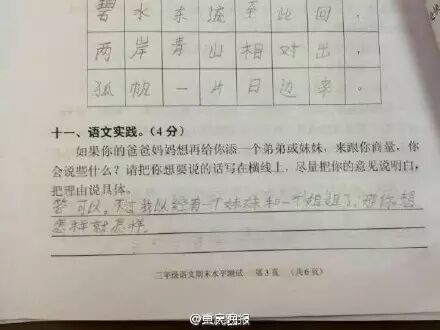 碧水东流至此回,
两岸青山相对出,
孤帆一片日边来。
十一、语文实践。(4分)
如果你的爸爸妈妈想再给你添一个弟弟或妹妹,来跟你商量,你
会说些什么?请把你想要说的话写在横线上,尽量把你的意见说明白,
把理由说具体。
答可以,不过我以经有一个妹妹和一个姐姐了,那你想
怎样就怎样。
三年级语文期末水平测试 第3页 (共6页)
@重庆晚报